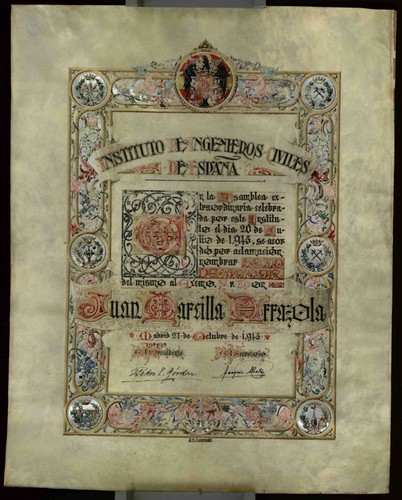 INSTITUTO DE INGENIEROS CIVILES
DE ESPAÑA
En la Asamblea ex-
traordinaria celebra-
da por este Institu-
to el dia 20 de Ju-
lio de 1.945, se acor-
dó por aclamación
nombrar
del mismo al Excmo. Sr. Don
Juan Marcilla Arrazola
Madrid 27 de Octubre de 1.945
El Presidente El Secretario